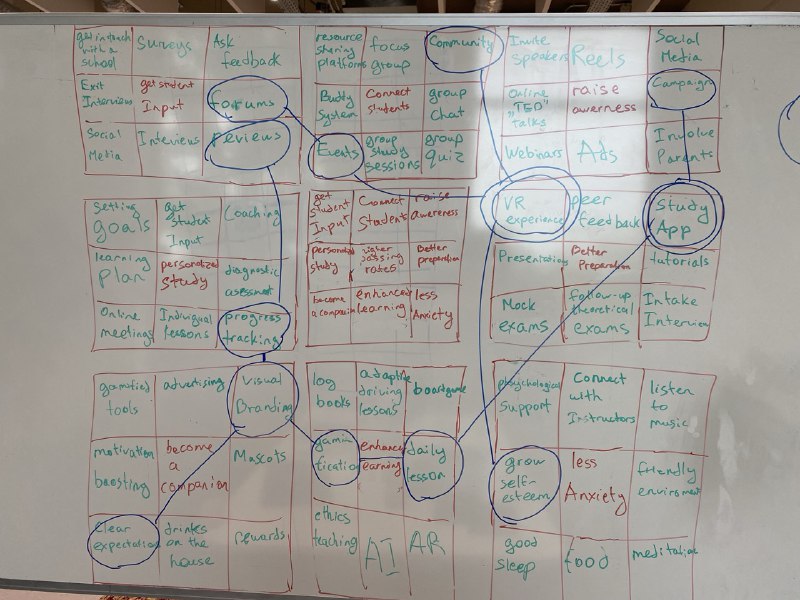 get in touch
with a
school
Surveys
Ask
feedback
Exit
Interview
get student
Input
forums
Social
Media
Interviews
reviews
resource
sharing
platforms
focus
group
Community
Buddy
System
Connect
students
group
Chat
Events
group
study
sessions
group
quiz
Invite
Speakers
Reels
Social
Media
Online
"TED"
talks
raise
awerness
Campaigns
Webinars
Ads
Involve
Parents
Setting
goals
get
student
Input
Coaching
learning
plan
personalized
study
diagnostic
asessment
Online
meetings
Individual
lessons
progress
tracking
get
student
Input
Connect
Student
raise
awareness
personalized
study
higher
passing
rates
Better
preperation
become
a companion
enhanced
learning
less
Anxiety
VR
experience
peer
feedback
Study
App
Presentations
Better
Preperation
tutorials
Mock
exams
follow-up
theoretical
exams
Intake
Interview
gamefied
tools
advertising
Visual
Branding
motivation
boosting
become
a
companion
Mascots
Clear
expectation
drinks
on the
house
rewards
log
books
adaptive
driving
lessons
boardgame
gami
fication
enhance
learning
daily
lesson
ethics
teaching
AI
AR
physchological
Support
Connect
with
Instructors
listen
to
music
grow
self-
esteem
less
Anxiety
friendly
enviroment
good
sleep
food
meditation